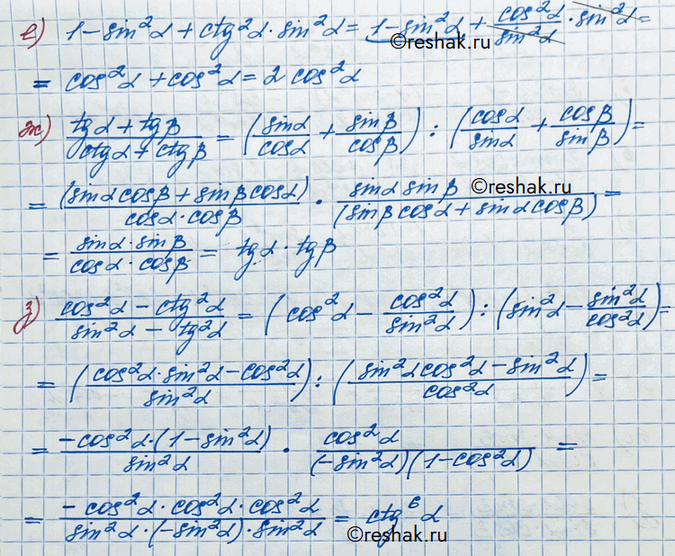 е) 1 - sin²α + ctg²α · sin²α = 1 - sin²α + cos²α/sin²α · sin²α =
©reshak.ru
= cos²α + cos²α = 2 cos²α
ж) (tgα + tgβ)/(ctgα + ctgβ) = (sinα/cosα + sinβ/cosβ) : (cosα/sinα + cosβ/sinβ) =
= (sinα cosβ + sinβ cosα)/(cosα · cosβ) · (sinα sinβ)/(sinβ cosα + sinα cosβ) =
©reshak.ru
= (sinα · sinβ)/(cosα · cosβ) = tgα · tgβ
з) (cos²α - ctg²α)/(sin²α - tg²α) = (cos²α - cos²α/sin²α) : (sin²α - sin²α/cos²α) =
= ((cos²α · sin²α - cos²α)/sin²α) : ((sin²α cos²α - sin²α)/cos²α) =
= (-cos²α · (1 - sin²α))/sin²α · cos²α/((-sin²α)(1 - cos²α)) =
= (-cos²α · cos²α · cos²α)/(sin²α · (-sin²α) · sin²α) = ctg⁶α
©reshak.ru